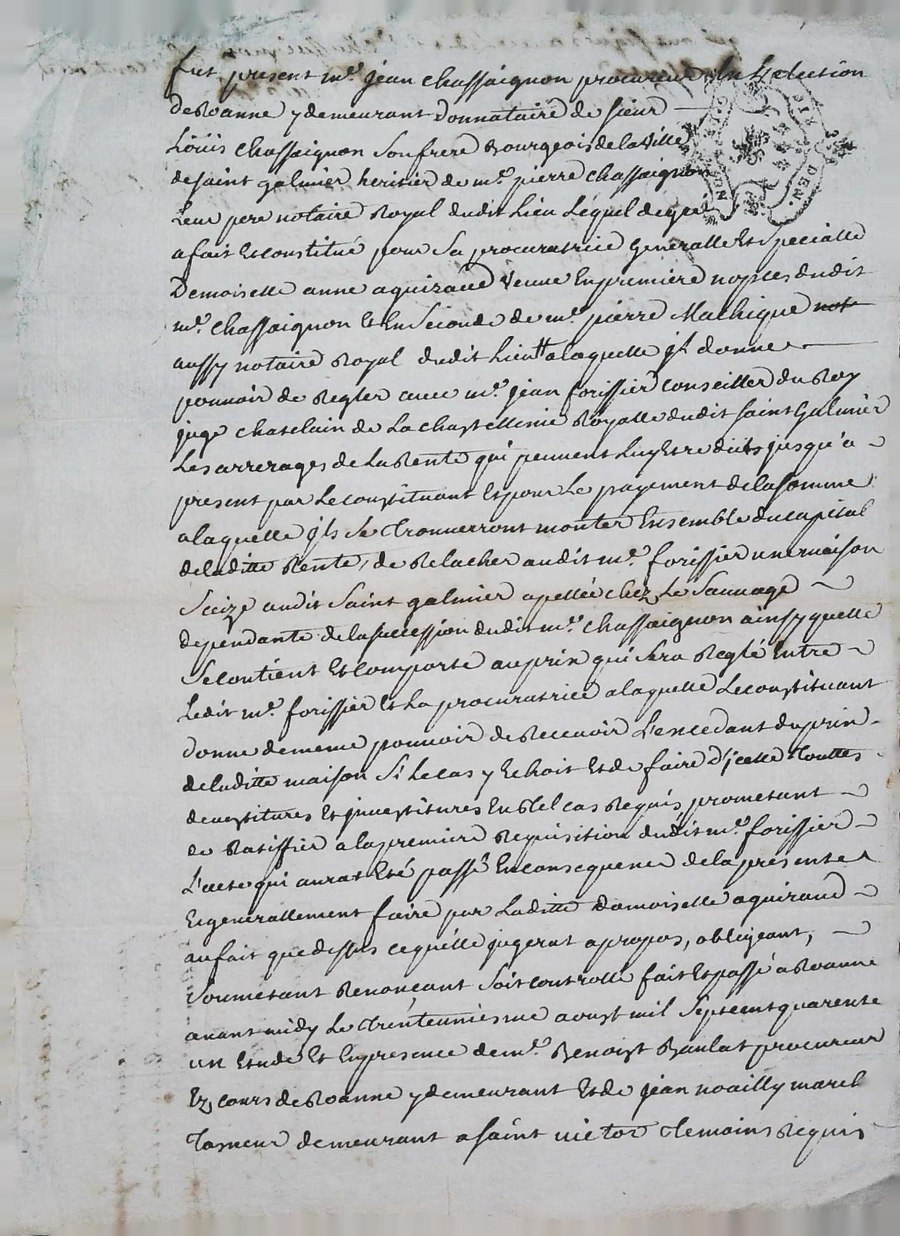 fut present me. jean chassaignon procureur En Lelection
de Roanne y demeurant Donnataire de sieur
Loüis chassaignon son frere Bourgeois de la ville
de saint galmier heritier de me. pierre chassaignon
Leur pere notaire Royal dudit Lieu Lequel de gré
a fait Et constitué pour sa procuratrice Generalle Et specialle
Demoiselle anne aquiraud veuve En premiere nopces dudit
me. chassaignon Et En seconde de me. pierre Mathique
aussy notaire Royal dudit Lieu a laquelle jl donne
pouvoir de Regler avec me. jean forissier Conseiller du Roy
juge chatelain de La chastellenie Royalle dudit saint Galmier
Les arrerages de La Rente qui peuvent Luy Etre dûts jusqu'a
present par Le constituant Et pour Le payement de la somme
a laquelle jls se trouverront monter Ensemble du capital
de laditte Rente, de Relacher audit me. forissier une maison
scize audit saint galmier apellée chez Le Sauvage
dependante de la succession dudit me. chassaignon ainsy quelle
se contient Et comporte au prix qui sera Reglé Entre
Ledit me. forissier Et La procuratrice a laquelle Le constituant
donne de meme pouvoir de Recevoir L'excedant du prix
de laditte maison si Le cas y Echoit Et de faire d'jcelle touttes
devestitures Et jnvestitures En tel cas Requis prometant
de Ratiffier a la premiere Requisition dudit me. forissier
L'acte qui aurat Eté passé En consequence de la presente
Et generallement faire par Laditte Damoiselle aquiraud
au fait que dessus ce qu'elle jugerat a propos, obligeant,
soumetant Renonçant soit controllé fait Et passé a Roanne
avant midy Le trenteuniesme aoust mil sept cent quarente
un Etude Et En presence de me. Benoist Baulat procureur
Ez cours de Roanne y demeurant Et de jean noailly
demeurant a saint victor temoins Requis